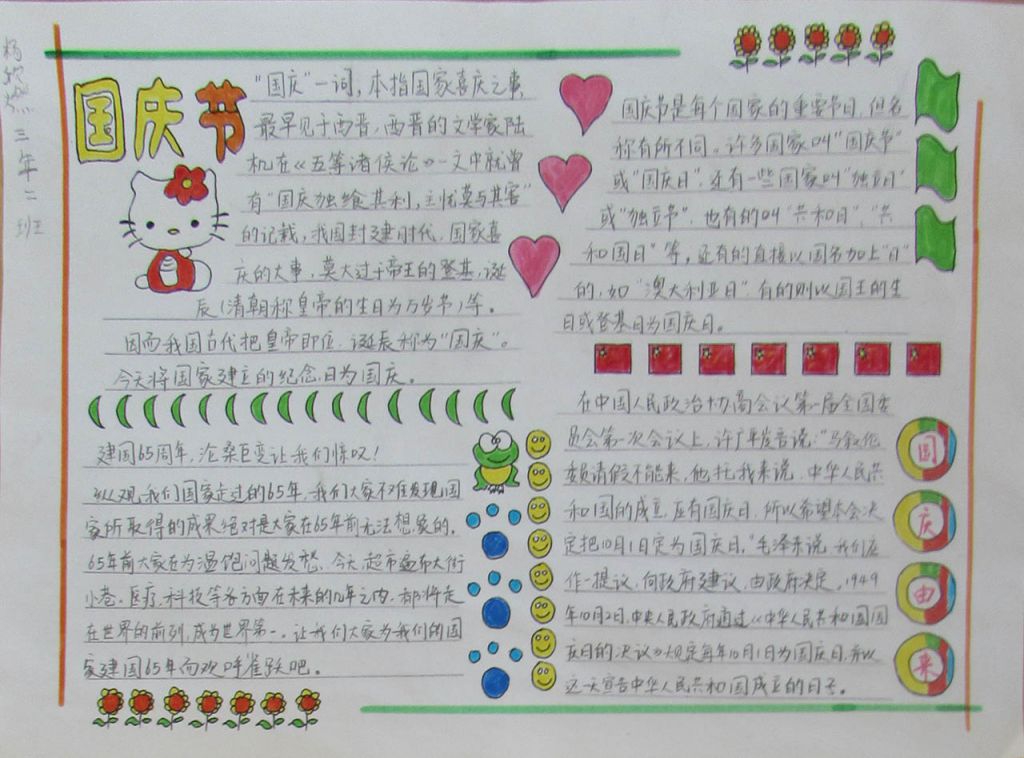 三年二班
国庆节
"国庆"一词，本指国家喜庆之事，
最早见于西晋，西晋的文学家陆
机在《五等诸侯论》一文中就曾
有"国庆独飨其利，主忧莫与其害"
的记载，我国封建时代、国家喜
庆的大事，莫大过于帝王的登基、诞
辰（清朝称皇帝的生日为万岁节）等。
因而我国古代把皇帝即位、诞辰称为"国庆"。
今天将国家建立的纪念日为国庆。
建国65周年，沧桑巨变让我们惊叹！
纵观我们国家走过的65年，我们大家不难发现国
家所取得的成果绝对是大家在65年前无法想象的，
65年前大家在为温饱问题发愁，今天，超市遍布大街
小巷、医疗、科技等各方面在未来的几年之内，都将走
在世界的前列，成为世界第一，让我们大家为我们的国
家建国65年而欢呼雀跃吧。
国庆节是每个国家的重要节日，但名
称有所不同。许多国家叫"国庆节"
或"国庆日"，还有一些国家叫"独立日"
或"独立节"，也有的叫"共和日"、"共
和国日"等，还有的直接以国名加上"日"
的，如"澳大利亚日"，有的则以国王的生
日或登基日为国庆日。
在中国人民政治协商会议第一届全国委
员会第一次会议上，许广平发言说："马叙伦
委员请假不能来，他托我来说，中华人民共
和国的成立，应有国庆日，所以希望本会决
定把10月1日定为国庆日。"毛泽东说，我们应
作一提议，向政府建议，由政府决定，1949
年10月2日，中央人民政府通过《中华人民共和国国
庆日的决议》规定每年10月1日为国庆日，并以
这一天宣告中华人民共和国成立的日子。
国
庆
由
来